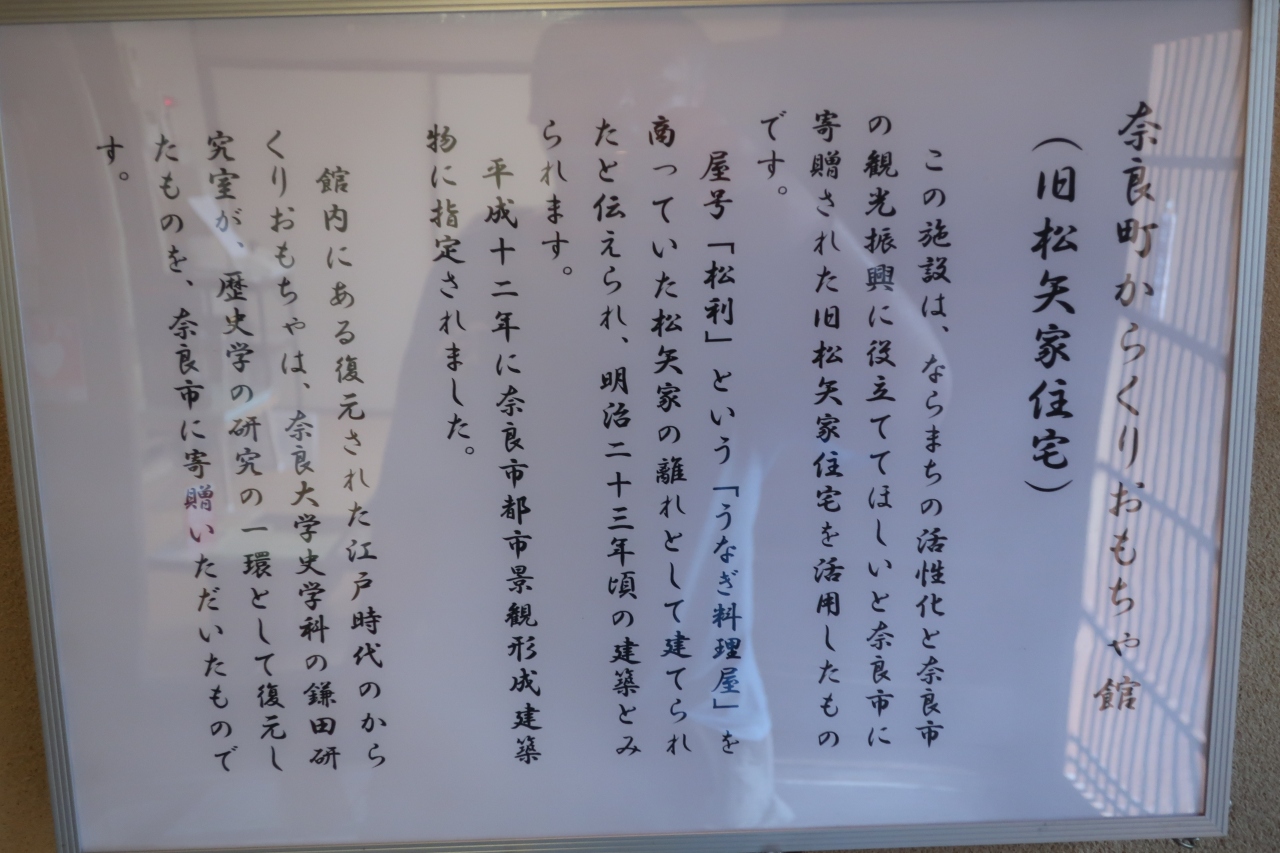 奈良町からくりおもちゃ館
（旧松矢家住宅）
この施設は、ならまちの活性化と奈良市
の観光振興に役立ててほしいと奈良市に
寄贈された旧松矢家住宅を活用したもの
です。
屋号「松利」という「うなぎ料理屋」を
商っていた松矢家の離れとして建てられ
たと伝えられ、明治二十三年頃の建築とみ
られます。
平成十二年に奈良市都市景観形成建築
物に指定されました。
館内にある復元された江戸時代のから
くりおもちゃは、奈良大学史学科の鎌田研
究室が、歴史学の研究の一環として復元し
たものを、奈良市に寄贈いただいたもので
す。